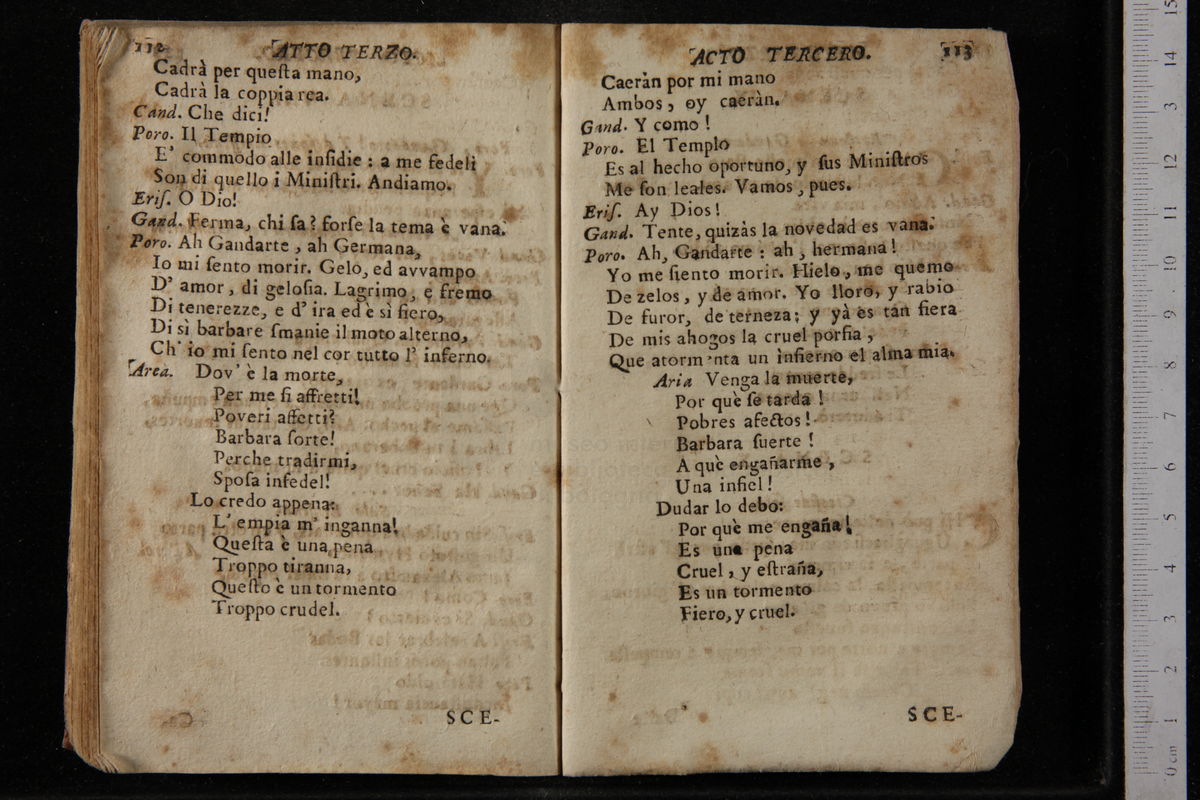 112 ATTO TERZO.
Cadrà per queſta mano,
Cadrà la coppia rea.
Cand. Che dici!
Poro. Il Tempio
E' commodo alle inſidie : a me fedeli
Son di quello i Miniſtri. Andiamo.
Eriſ. O Dio!
Gand. Ferma, chi ſa? forſe la tema è vana.
Poro. Ah Gandarte, ah Germana,
Io mi ſento morir. Gelo, ed avvampo
D' amor, di geloſia. Lagrimo, e fremo
Di tenerezze, e d' ira ed è sì fiero,
Di sì barbare ſmanie il moto alterno,
Ch' io mi ſento nel cor tutto l' inferno.
Area. Dov' è la morte,
Per me ſi affretti!
Poveri affetti?
Barbara ſorte!
Perche tradirmi,
Spoſa infedel!
Lo credo appena:
L' empia m' inganna!
Queſta è una pena
Troppo tiranna,
Queſto è un tormento
Troppo crudel.
SCE-
ACTO TERCERO. 113
Caeràn por mi mano
Ambos, oy caeràn.
Gand. Y como !
Poro. El Templo
Es al hecho oportuno, y ſus Miniſtros
Me ſon leales. Vamos, pues.
Eriſ. Ay Dios!
Gand. Tente, quizàs la novedad es vana.
Poro. Ah, Gandarte : ah, hermana!
Yo me ſiento morir. Hielo, me quemo
De zelos, y de amor. Yo lloro, y rabio
De furor, de terneza; y yà es tan fiera
De mis ahogos la cruel porfia,
Que atormenta un infierno el alma mia.
Aria Venga la muerte,
Por què ſe tarda !
Pobres afectos !
Barbara ſuerte !
A què engañarme,
Una infiel !
Dudar lo debo:
Por què me engaña!
Es una pena
Cruel, y eſtraña,
Es un tormento
Fiero, y cruel.
SCE-